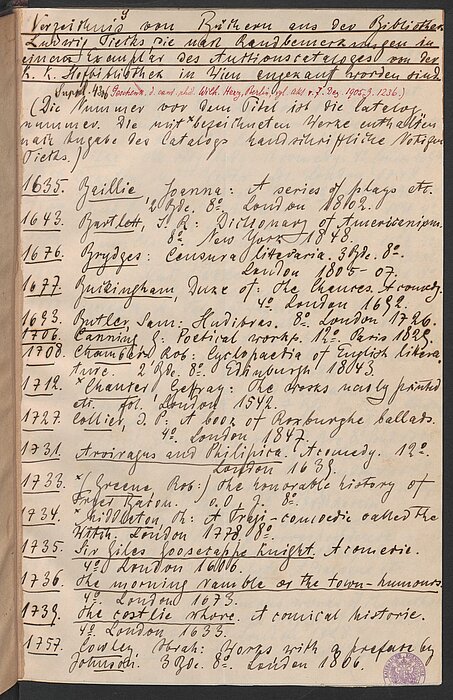 Verzeichnis von Büchern aus der Bibliothek
Ludwig Tiecks, die nach Randbemerkungen in
einem Exemplar des Auktionscataloges von der
K. K. Hofbibliothek in Wien angekauft worden sind.
(Die Nummer vor dem Titel ist die Catalog
nummer. Die mit × bezeichneten Werke enthalten
nach Angabe des Catalogs handschriftliche Notizen
Tiecks.)
1635. Baillie, Joanna: A series of plays etc.
2 Bde. 8º. London 1802.
1643. Bartlett, J. R.: Dictionary of Americanisms.
8º. New York 1848.
1676. Brydges: Censura literaria. 3 Bde. 8º.
London 1805–07.
1677. Buckingham, Duke of: the Chances. A comedy.
4º. London 1692.
1693. Butler, Sam: Hudibras. 8º. London 1726.
1706. Canning, G: Poetical works. 12º. Paris 1829.
1708. Chambers, Rob: Cyclopaedia of English litera-
ture. 2 Bde. 8º. Edinburgh 1843.
1712. × Chaucer, Geffray: the works newly printed
etc. fol. London 1542.
1727. Collier, J. P: A book of Roxburghe ballads.
4º. London 1847.
1731. Arviragus and Philipica. A comedy. 12º.
London 1639.
1733. × (Greene, Rob:) the honorable history of
Fryer Bacon. o. O. J. 8º.
1734. × Middleton, Th: A Tragi-comoedie called the
Witch. London 1778. 8º.
1735. Sir Giles Goosecappe Knight. A comedie.
4º. London 1606.
1736. the morning ramble or the town-humours.
4º. London 1673.
1739. the costlie whore. A comical historie.
4º. London 1633.
1757. Cowley, Abrah: Works with a preface by
Johnson. 3 Bde. 8º. London 1806.